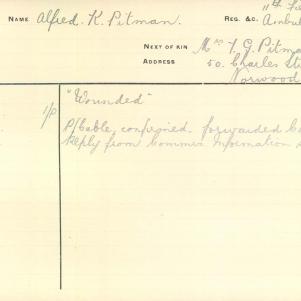 11th Fi
NAME Alfred. K. Pitman. REG. &C. Ambul
NEXT OF KIN Mrs T. G. Pitma
ADDRESS 50. Charles St
Norwood
"Wounded"
1/P P/Cable, confirmed. forwarded
Reply from Commrs Information